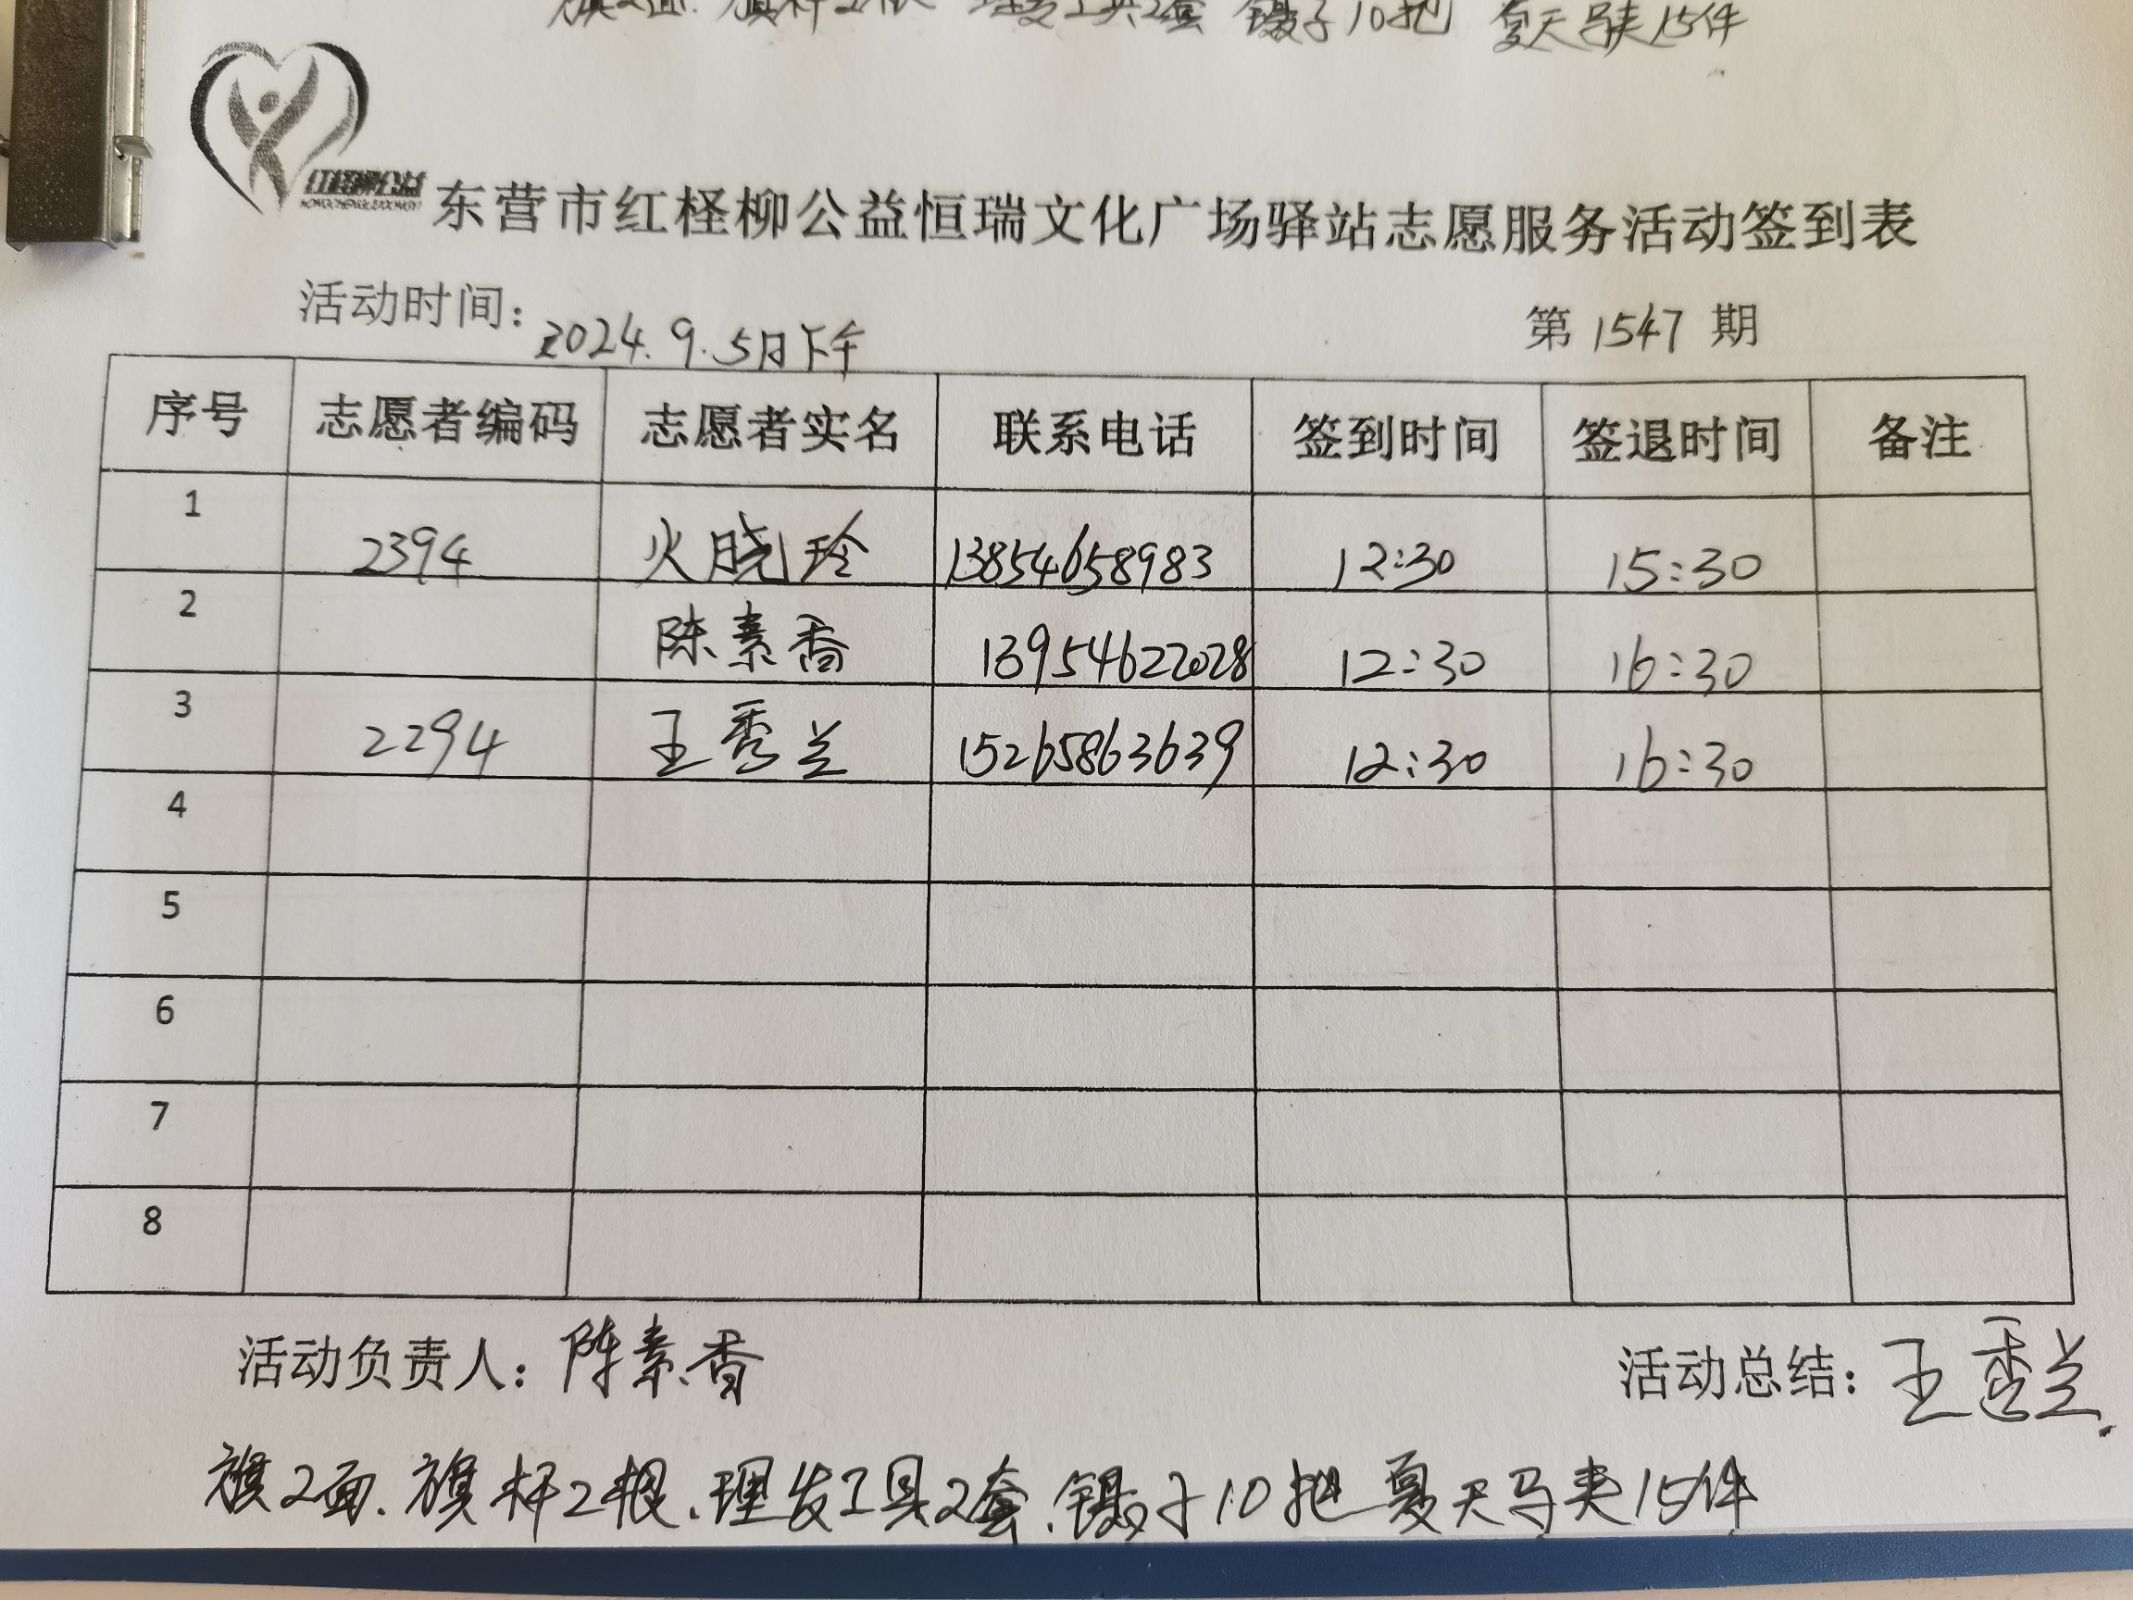 旗2面. 旗杆2根 理发工具2套 镊子10把 夏天马夹15件
红柽柳公益
东营市红柽柳公益恒瑞文化广场驿站志愿服务活动签到表
活动时间: 2024.9.5日下午 第1547期
序号 志愿者编码 志愿者实名 联系电话 签到时间 签退时间 备注
1 2394 火晓玲 13854658983 12:30 15:30
2 陈素香 13954622028 12:30 16:30
3 2294 王秀兰 15265863639 12:30 16:30
4
5
6
7
8
活动负责人: 陈素香 活动总结: 王秀兰.
旗2面.旗杆2根、理发工具2套.镊子10把 夏天马夹15件